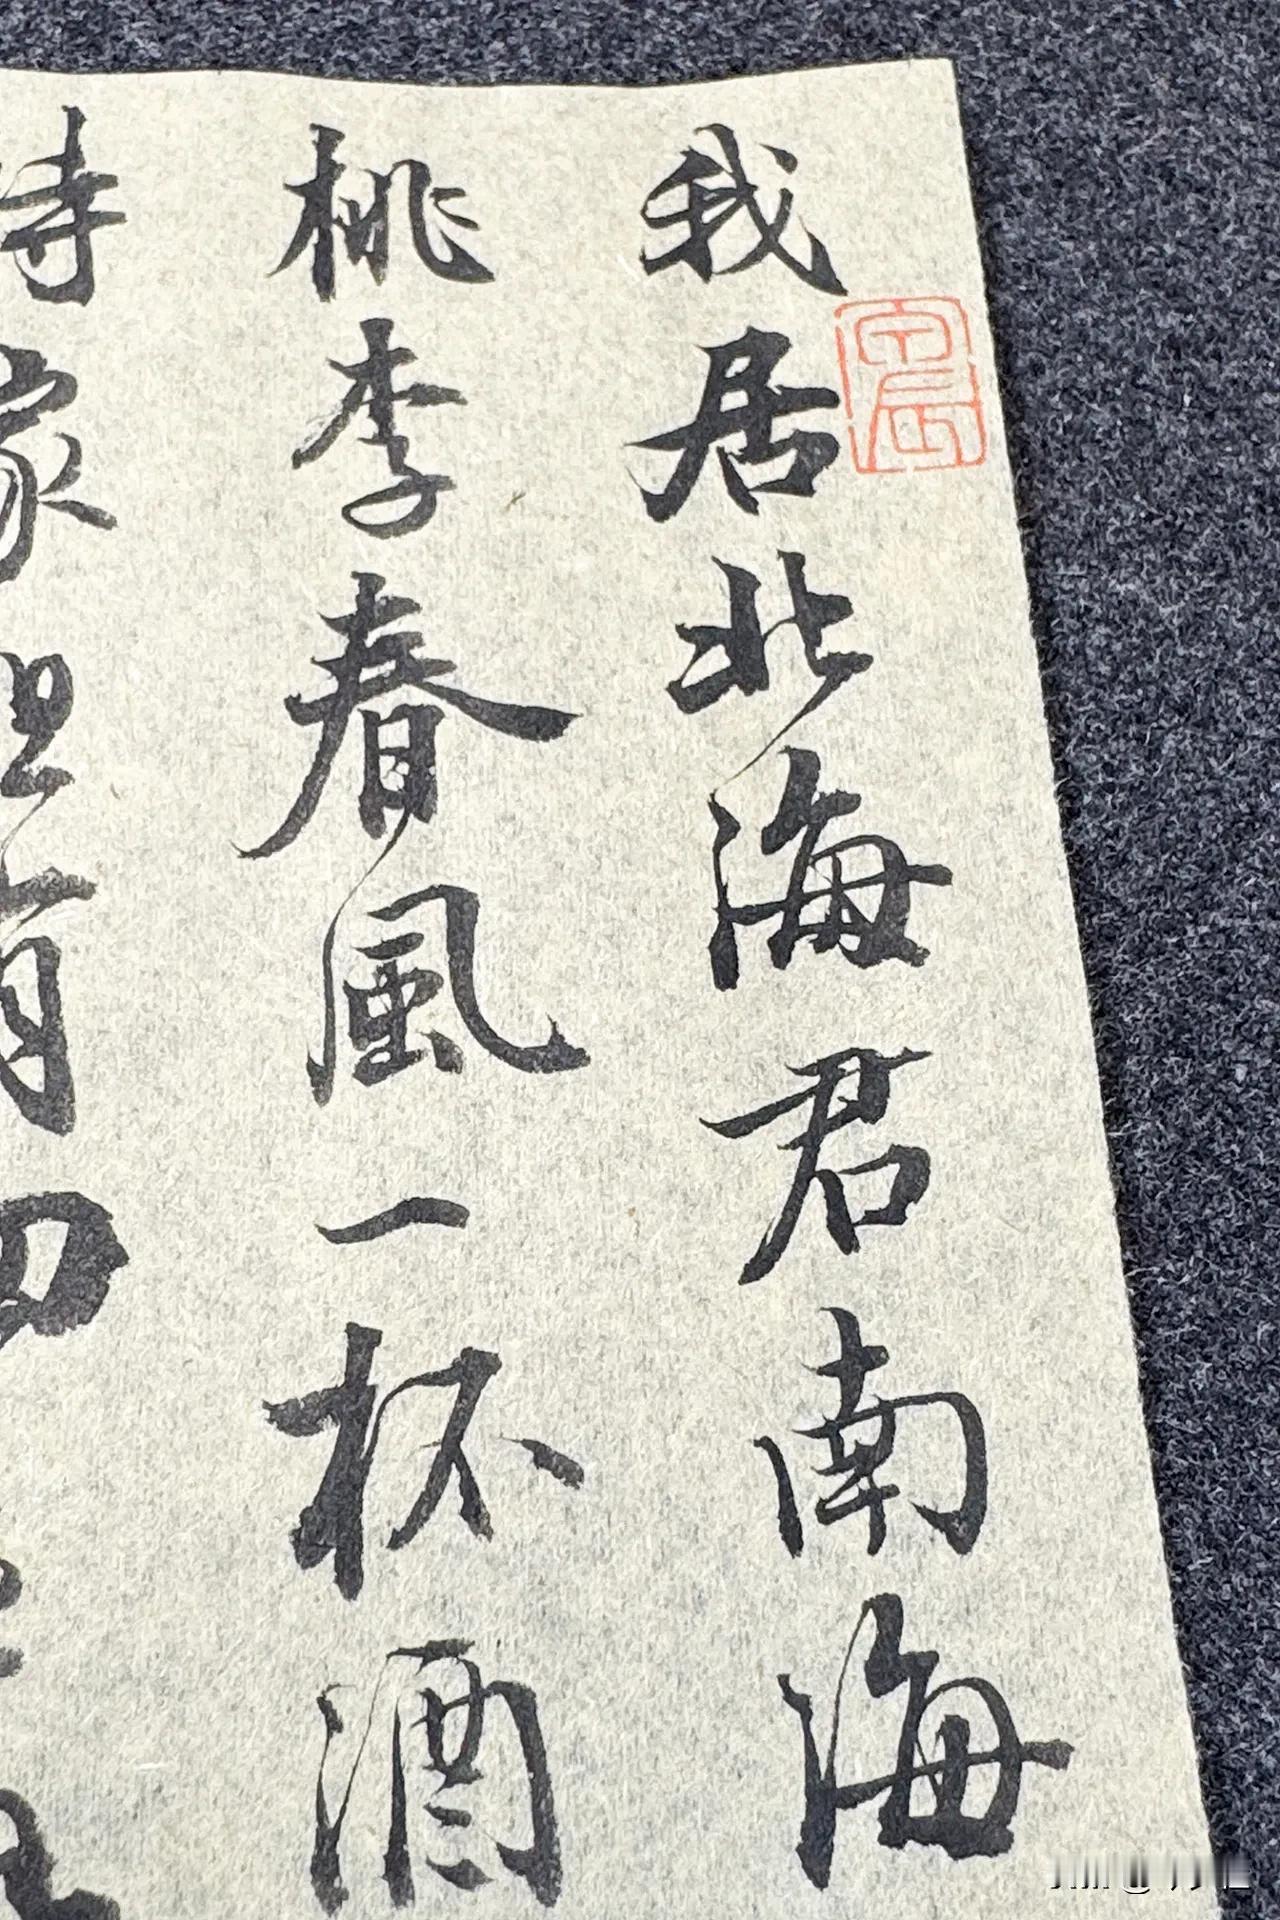 我居北海君南海
桃李春風一杯酒
持家但有四